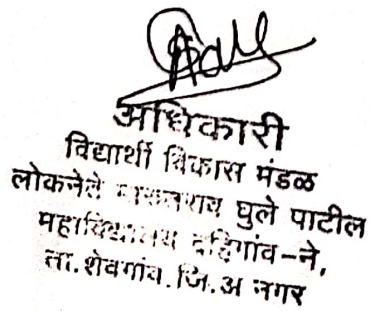 अधिकारी
विद्यार्थी विकास मंडळ
लोकनेते मारुतराव घुले पाटील
महाविद्यालय दहिगांव-ने,
ता.शेवगांव.जि.अ नगर